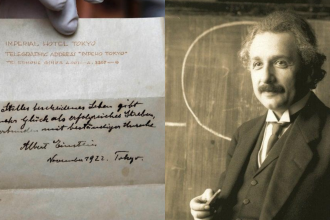 IMPERIAL HOTEL TOKYO
TELEGRAPHIC ADDRESS
Stilles bescheidenes Leben gibt
mehr Glück als erfolgreiches Streben,
verbunden mit beständiger Unruhe.
Albert Einstein.
November 1922. Tokyo.